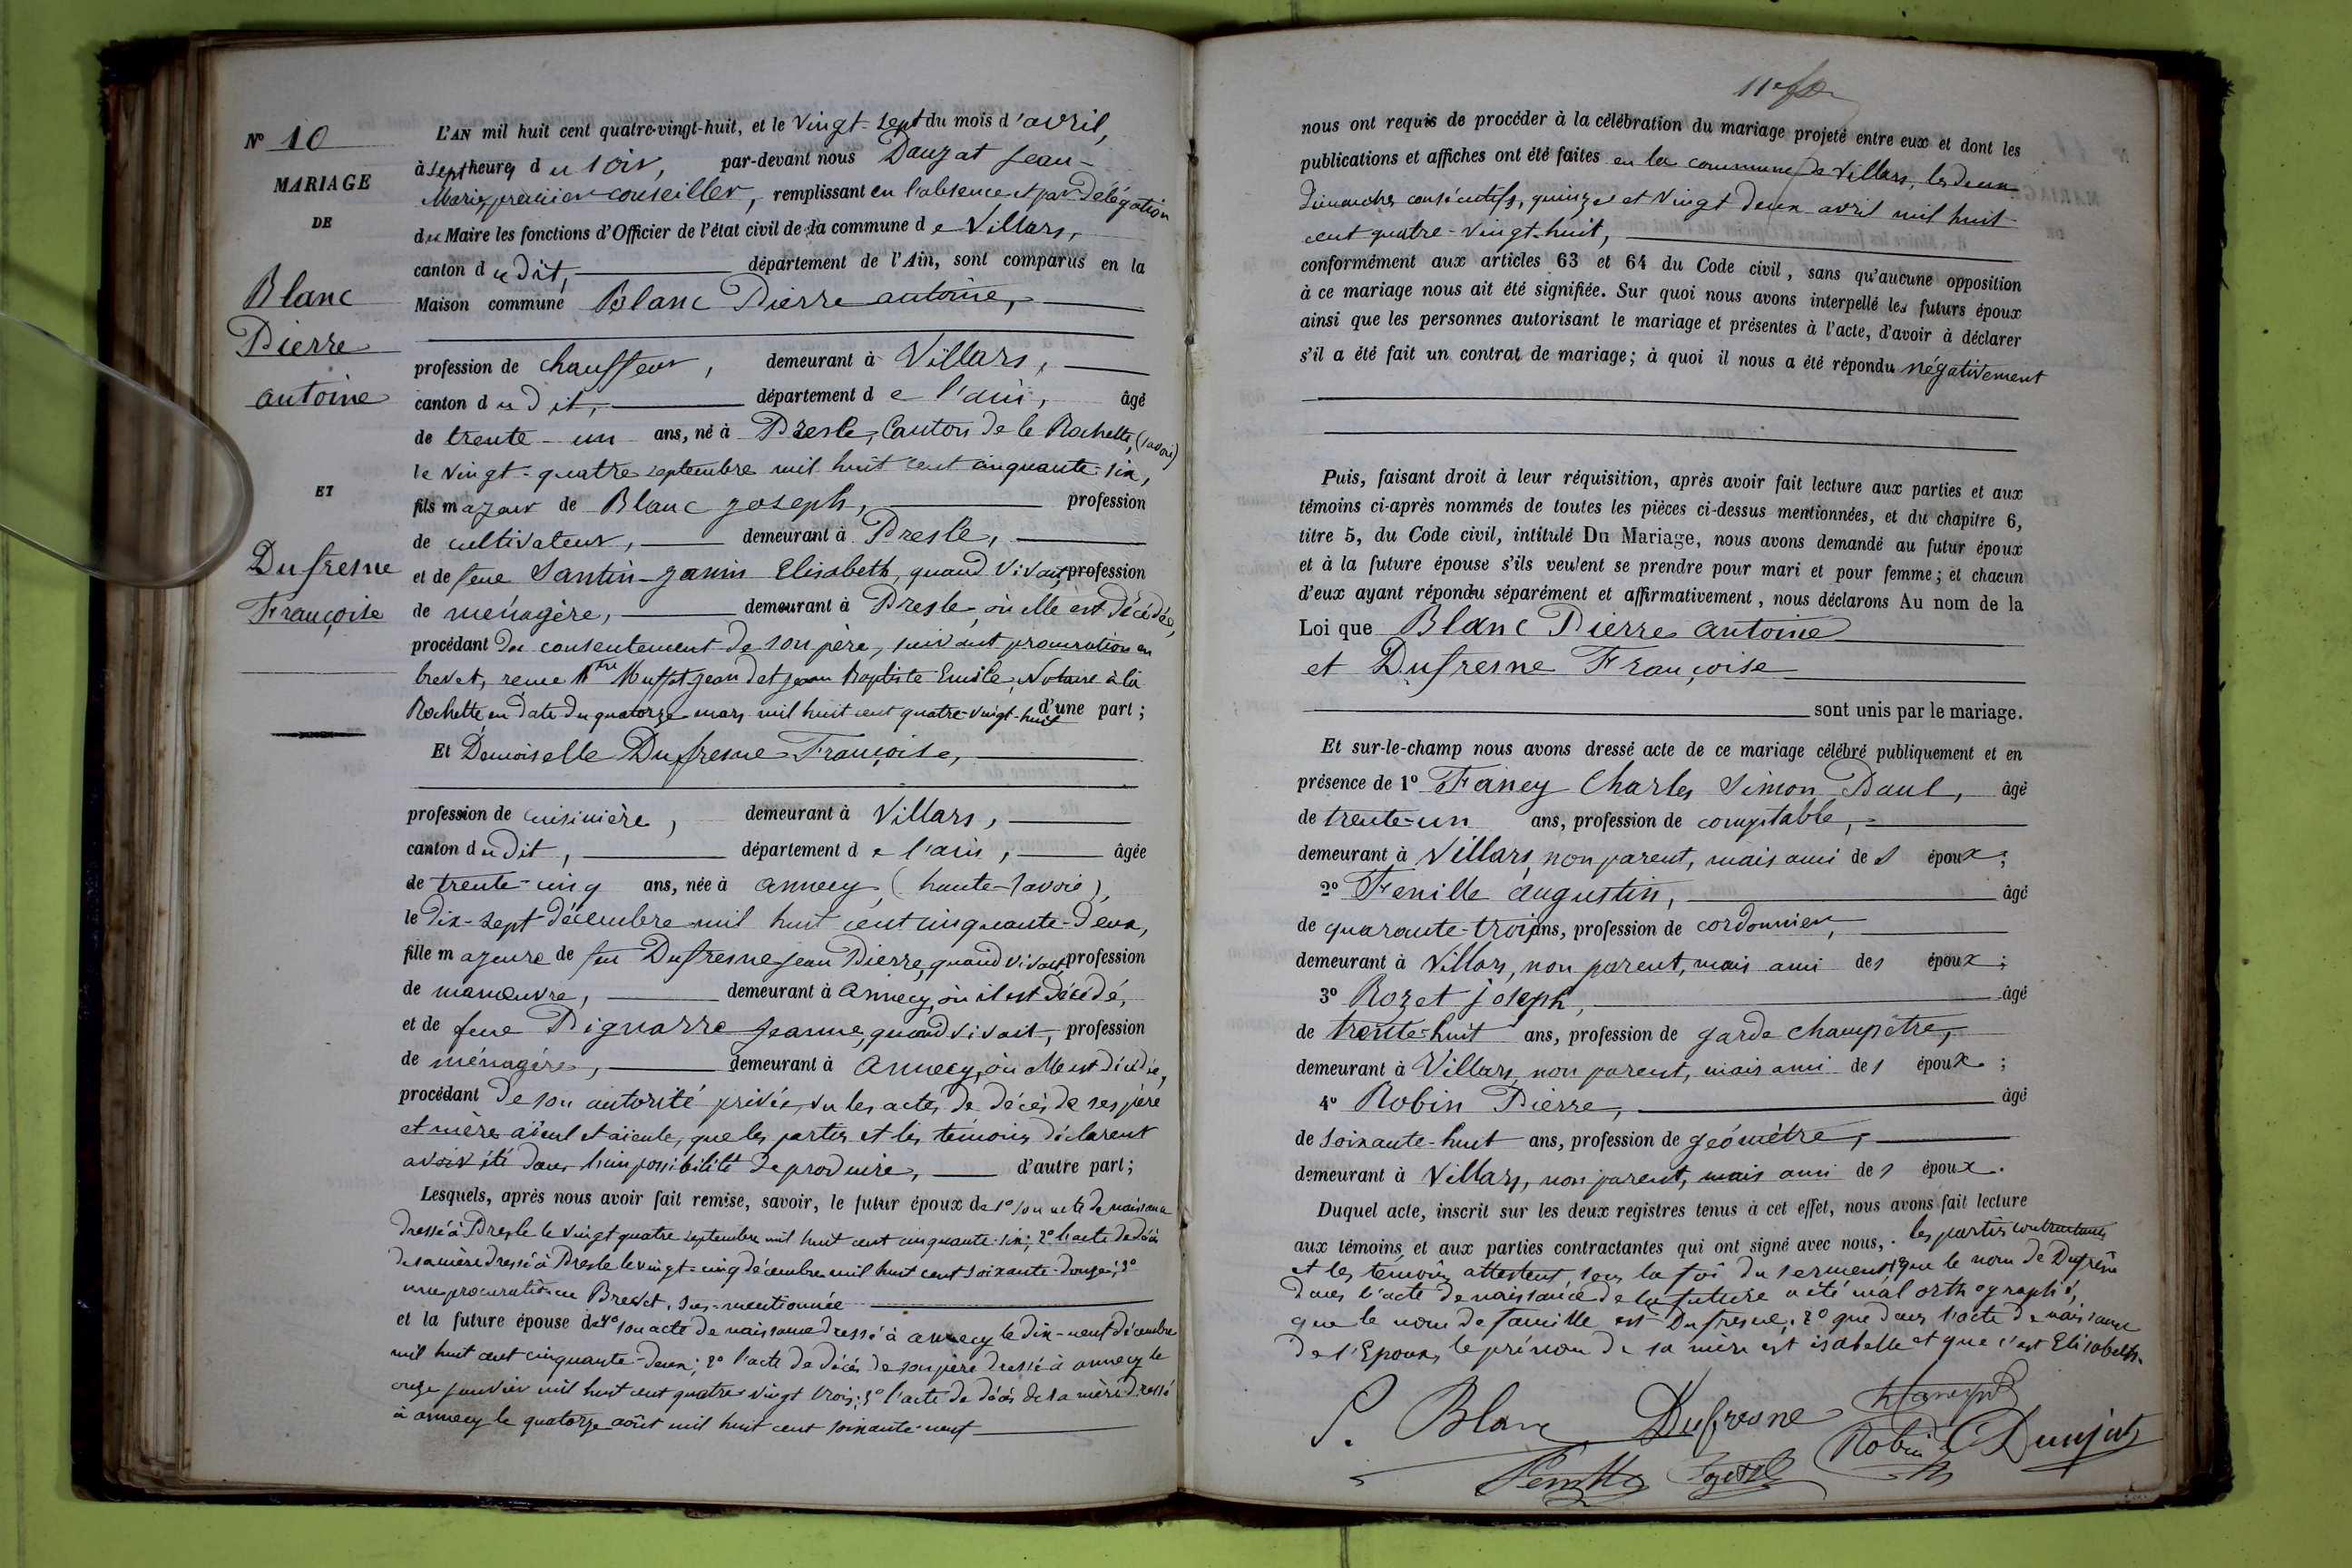 N° 10
MARIAGE
DE
Blanc
Pierre
antoine
ET
Dufresne
Françoise
L'AN mil huit cent quatre-vingt-huit, et le Vingt-sept du mois d'avril,
à sept heures du soir, par-devant nous Dauzat Jean-
Marie, premier conseiller, remplissant en l'absence et par délégation
du Maire les fonctions d'Officier de l'état civil de la commune de Villars,
canton dudit, département de l'Ain, sont comparus en la
Maison commune Blanc Pierre antoine,
profession de chauffeur, demeurant à Villars,
canton dudit, département de l'ain, âgé
de trente-un ans, né à Presle, Canton de la Rochette, (savoie)
le vingt-quatre septembre mil huit cent cinquante-six,
fils majeur de Blanc joseph, profession
de cultivateur, demeurant à Presle,
et de feue Santin-janin Elisabeth, quand vivait, profession
de ménagère, demeurant à Presle, où elle est décédée,
procédant du consentement de son père, suivant procuration en
brevet, reçue Mtre Jean Baptiste Emile, Notaire à la
Rochette, en date du quatorze mars mil huit cent quatre-vingt-huit d'une part;
Et Demoiselle Dufresne Françoise,
profession de cuisinière, demeurant à Villars,
canton dudit, département de l'ain, âgée
de trente-cinq ans, née à annecy, (haute-savoie),
le dix-sept décembre mil huit cent cinquante-deux,
fille majeure de feu Dufresne Jean Pierre, quand vivait, profession
de manœuvre, demeurant à annecy, où il est décédé,
et de feue Pignarre Jeanne, quand vivait, profession
de ménagère, demeurant à annecy, où elle est décédée,
procédant de son autorité privée, vu les actes de décès de ses père
et mère, aïeul et aïeule, que les parties et les témoins déclarent
avoir été dans l'impossibilité de produire, d'autre part;
Lesquels, après nous avoir fait remise, savoir, le futur époux de 1° son acte de naissance
dressé à Presle le vingt quatre septembre mil huit cent cinquante-six; 2° l'acte de décès
de sa mère dressé à Presle le vingt-cinq décembre mil huit cent soixante-douze; 3°
une procuration en Brevet, sus-mentionnée
et la future épouse de 1° son acte de naissance dressé à annecy le dix-neuf décembre
mil huit cent cinquante-deux; 2° l'acte de décès de son père dressé à annecy le
onze janvier mil huit cent quatre vingt trois; 3° l'acte de décès de sa mère dressé
à annecy le quatorze août mil huit cent soixante-neuf
11e
nous ont requis de procéder à la célébration du mariage projeté entre eux et dont les
publications et affiches ont été faites en la commune de Villars, les deux
Dimanches consécutifs, quinze et Vingt deux avril mil huit-
cent quatre-vingt-huit,
conformément aux articles 63 et 64 du Code civil, sans qu'aucune opposition
à ce mariage nous ait été signifiée. Sur quoi nous avons interpellé les futurs époux
ainsi que les personnes autorisant le mariage et présentes à l'acte, d'avoir à déclarer
s'il a été fait un contrat de mariage; à quoi il nous a été répondu négativement
Puis, faisant droit à leur réquisition, après avoir fait lecture aux parties et aux
témoins ci-après nommés de toutes les pièces ci-dessus mentionnées, et du chapitre 6,
titre 5, du Code civil, intitulé Du Mariage, nous avons demandé au futur époux
et à la future épouse s'ils veulent se prendre pour mari et pour femme; et chacun
d'eux ayant répondu séparément et affirmativement, nous déclarons Au nom de la
Loi que Blanc Pierre antoine
et Dufresne Françoise
sont unis par le mariage.
Et sur-le-champ nous avons dressé acte de ce mariage célébré publiquement et en
présence de 1° Faney Charles Simon Paul, âgé
de trente-un ans, profession de comptable,
demeurant à Villars, non parent, mais ami des époux;
2° Fenille augustin, âgé
de quarante-trois ans, profession de cordonnier,
demeurant à Villars, non parent, mais ami des époux;
3° Rozet joseph, âgé
de trente-huit ans, profession de garde champêtre,
demeurant à Villars, non parent, mais ami des époux;
4° Robin Pierre, âgé
de soixante-huit ans, profession de géomètre,
demeurant à Villars, non parent, mais ami des époux.
Duquel acte, inscrit sur les deux registres tenus à cet effet, nous avons fait lecture
aux témoins et aux parties contractantes qui ont signé avec nous, . les parties contractantes
et les témoins attestent, sous la foi du serment, 1° que le nom de Dufrêne
dans l'acte de naissance de la future a été mal orthographié,
que le nom de famille est Dufresne, 2° que dans l'acte de naissance
de l'Epoux, le prénom de sa mère est isabelle et que c'est Elisabeth.
P. Blanc Dufresne
Robin